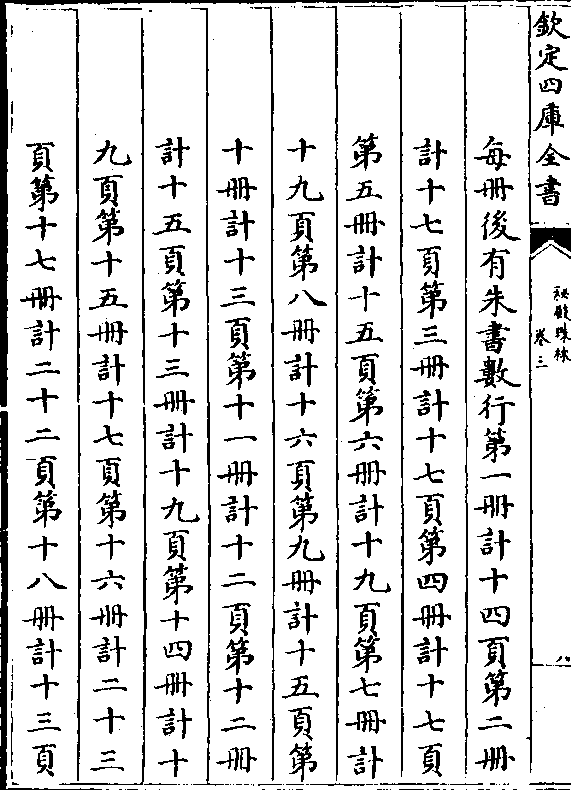 欽定四庫全書
秘殿珠林
卷三
八
每冊後有朱書數行第一冊計十四頁第二冊
計十七頁第三冊計十七頁第四冊計十七頁
第五冊計十五頁第六冊計十九頁第七冊計
十九頁第八冊計十六頁第九冊計十五頁第
十冊計十三頁第十一冊計十二頁第十二冊
計十五頁第十三冊計十九頁第十四冊計十
九頁第十五冊計十七頁第十六冊計二十三
頁第十七冊計二十二頁第十八冊計十三頁